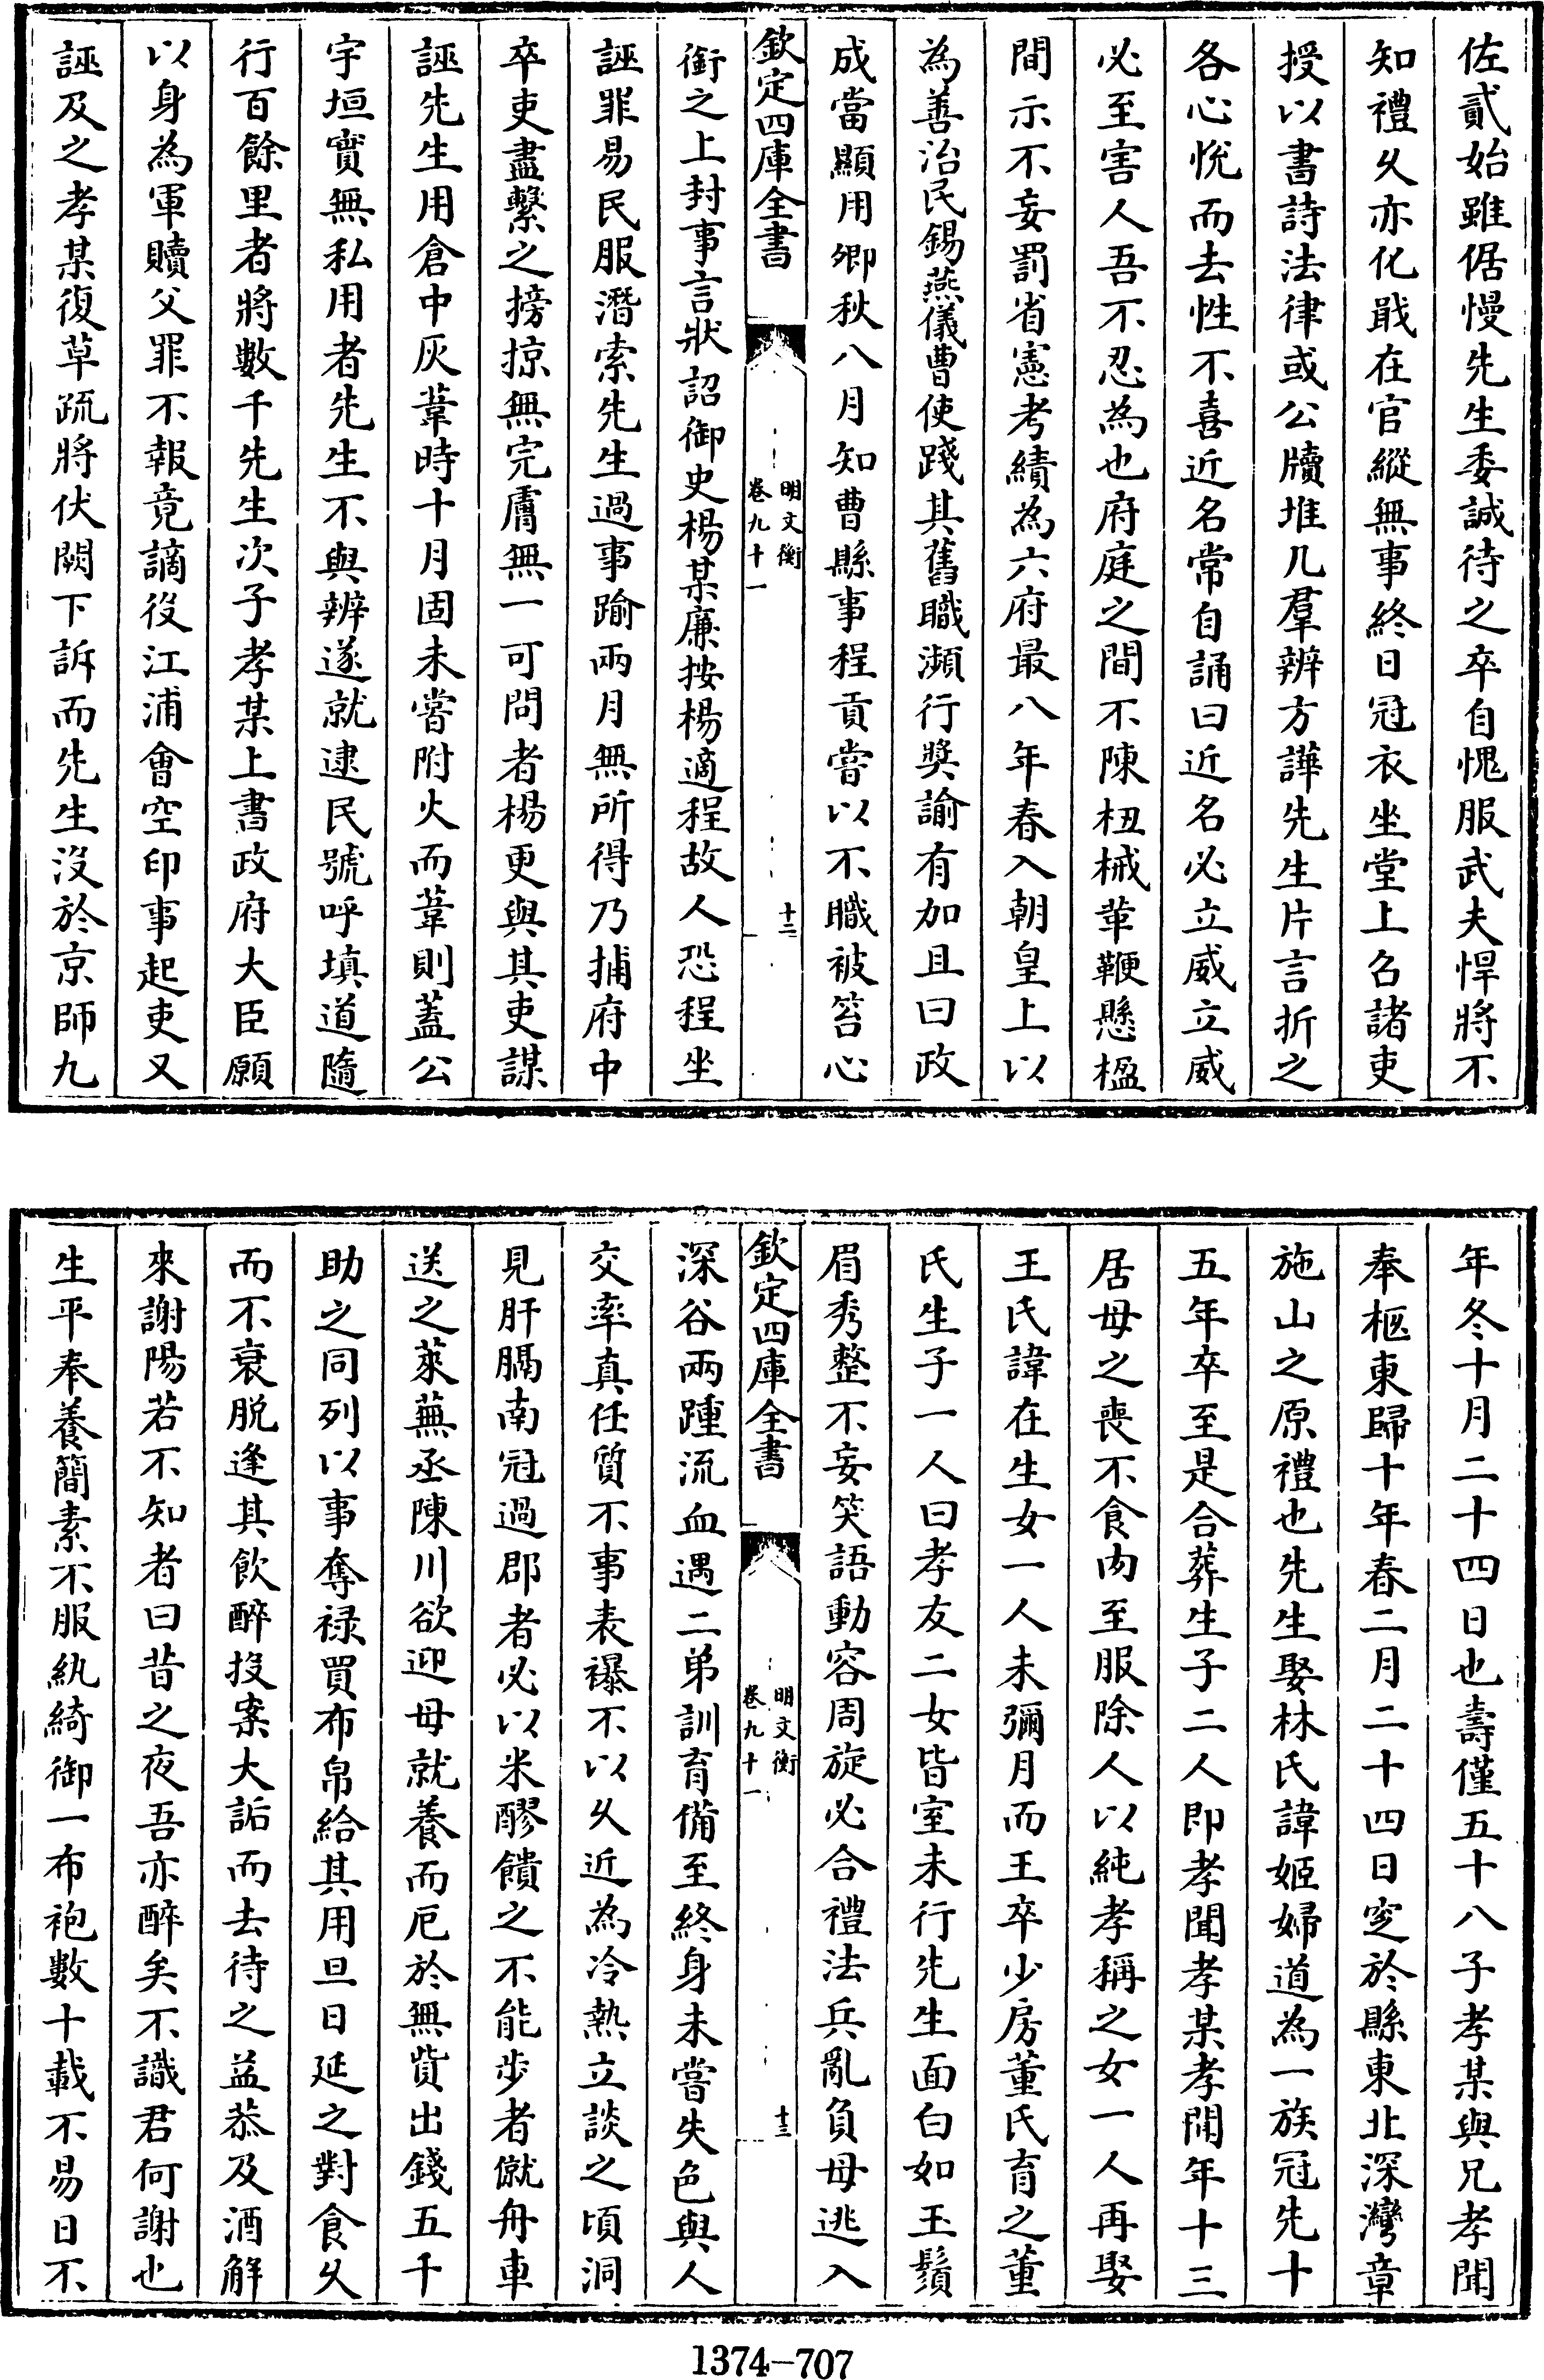 佐貳始雖倨慢先生委誠待之卒自愧服武夫悍將不
知禮久亦化戢在官縱無事終日冠衣坐堂上召諸吏
授以書詩法律或公牘堆几羣辨方譁先生片言折之
各心悅而去性不喜近名常自誦曰近名必立威立威
必至害人吾不忍為也府庭之間不陳杻械革鞭懸楹
間示不妄罰省憲考績為六府最八年春入朝皇上以
為善治民錫燕儀曹使踐其舊職瀕行奬諭有加且曰政
成當顯用卿秋八月知曹縣事程貢嘗以不職被笞心
欽定四庫全書
明文衡
卷九十一
十二
銜之上封事言狀詔御史楊某廉按楊適程故人恐程坐
誣罪易民服潛索先生過事踰兩月無所得乃捕府中
卒吏盡繫之搒掠無完膚無一可問者楊更與其吏謀
誣先生用倉中灰葦時十月固未嘗附火而葦則蓋公
宇垣實無私用者先生不與辨遂就逮民號呼填道隨
行百餘里者將數千先生次子孝某上書政府大臣願
以身為軍贖父罪不報竟謫役江浦會空印事起吏又
誣及之孝某復草疏將伏闕下訴而先生没於京師九
年冬十月二十四日也壽僅五十八子孝某與兄孝聞
奉柩東歸十年春二月二十四日窆於縣東北深灣章
施山之原禮也先生娶林氏諱姬婦道為一族冠先十
五年卒至是合葬生子二人即孝聞孝某孝聞年十三
居母之喪不食肉至服除人以純孝稱之女一人再娶
王氏諱在生女一人未彌月而王卒少房董氏育之董
氏生子一人曰孝友二女皆室未行先生面白如玉鬚
眉秀整不妄笑語動容周旋必合禮法兵亂負母逃入
欽定四庫全書
明文衡
卷九十一
十三
深谷兩踵流血遇二弟訓育備至終身未嘗失色與人
交率真任質不事表襮不以久近為冷熱立談之頃洞
見肝膈南冠過郡者必以米醪饋之不能步者僦舟車
送之萊蕪丞陳川欲迎母就養而厄於無貲出錢五千
助之同列以事奪禄買布帛給其用旦日延之對食久
而不衰脱逢其飲醉投案大詬而去待之益恭及酒解
來謝陽若不知者曰昔之夜吾亦醉矣不識君何謝也
生平奉養簡素不服紈綺御一布袍數十載不易日不
1374-707